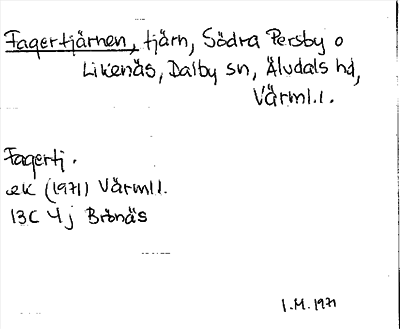 Fagertjärnen, tjärn, Södra Persby o
Likenäs, Dalby sn, Älvdals hd,
Värml.l.
Fagertj.
ek (1971) Värml l.
13C 4j Brönäs
I.M. 1971